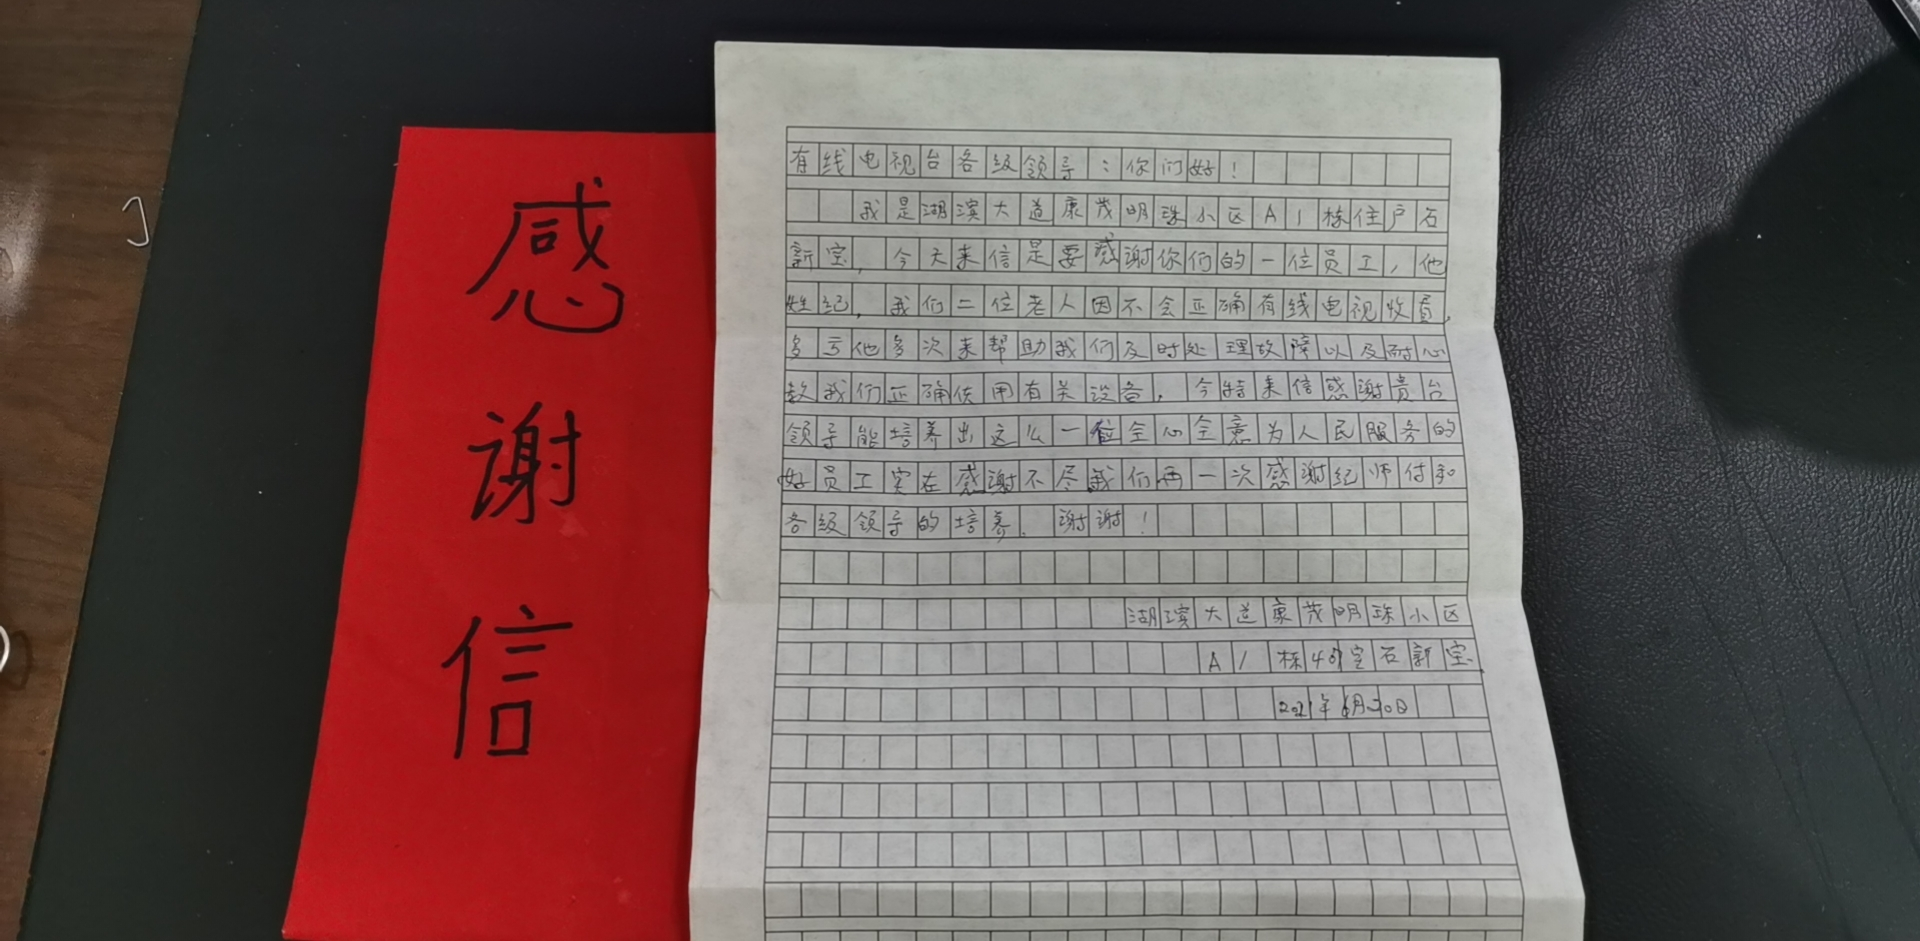 感
谢
信
有线电视台各级领导：你们好！
我是湖滨大道康茂明珠小区A1栋住户石
新宝，今天来信是要感谢你们的一位员工，他
姓纪，我们二位老人因不会正确有线电视收看，
多亏他多次来帮助我们及时处理故障以及耐心
教我们正确使用有关设备，今特来信感谢贵台
领导能培养出这么一位全心全意为人民服务的
好员工实在感谢不尽我们再一次感谢纪师付和
各级领导的培养．谢谢！
湖滨大道康茂明珠小区
A1栋 石新宝
2021年6月30日